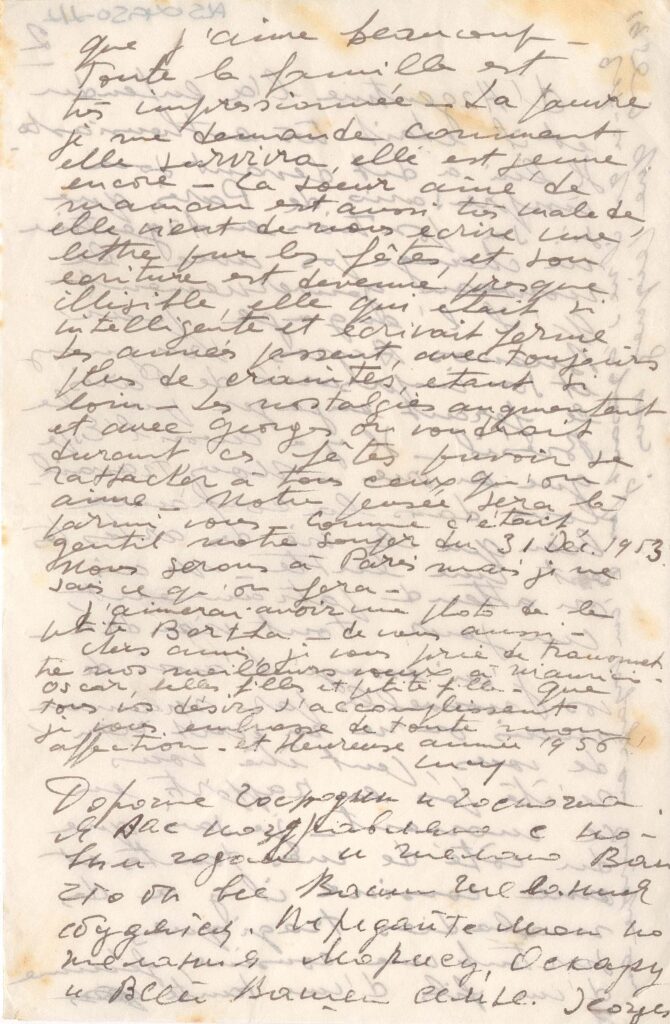 que j'aime beaucoup -
Toute la famille est
très impressionnée - La pauvre
je me demande comment
elle survivra, elle est jeune
encore - La soeur ainé de
maman est aussi très malade,
elle vient de nous écrire une
lettre pur les fêtes, et son
écriture est devenue presque
illisible, elle qui était si
intelligente et écrivait ferme
Les années passent, avec toujours
plus de craintes, étant si
loin - Les nostalgies augmentent
et avec Georges on voudrait
durant ces fêtes puvoir se
rattacher à tous ceux qu'on
aime - Notre pensée sera là
parmi vous - Comme c'était
gentil notre souper du 31 Déc. 1953.
Nous serons à Paris mais je ne
sais ce qu'on fera -
J'aimerai avoir une photo de la
petite Bertha - de vous aussi -
Chers amis, je vous prie de transmet-
tre nos meilleurs voeux à Maurice -
Oscar, belles filles et petite fille - Que
tous vos désirs s'accomplissent
je vous embrasse de toute mon
affection - et Heureuse année 1956
Lucy
Дорогие господин и госпожа
Я вас поздравляю с но-
вым годом и желаю Вам
что бы все Ваши желания
сбудлись. Передайте мои по
желания Морису, Оскару
и всей Вашей семье. Georges